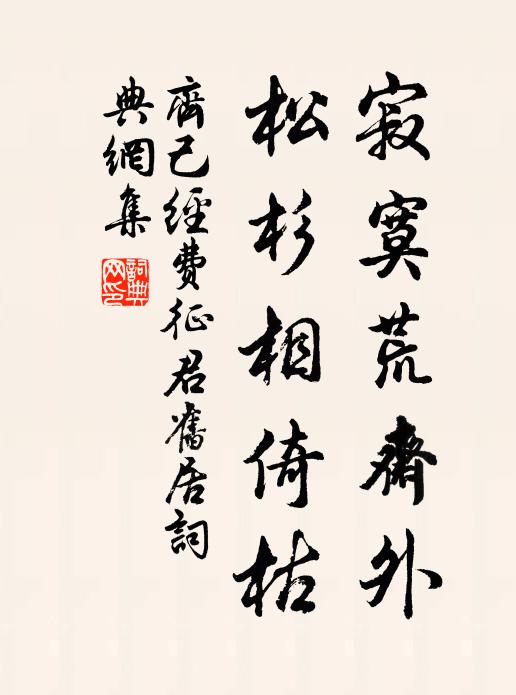 寂寞荒齋外
松杉相倚枯
齊己經費征君舊居詞
典網集
詞典網印